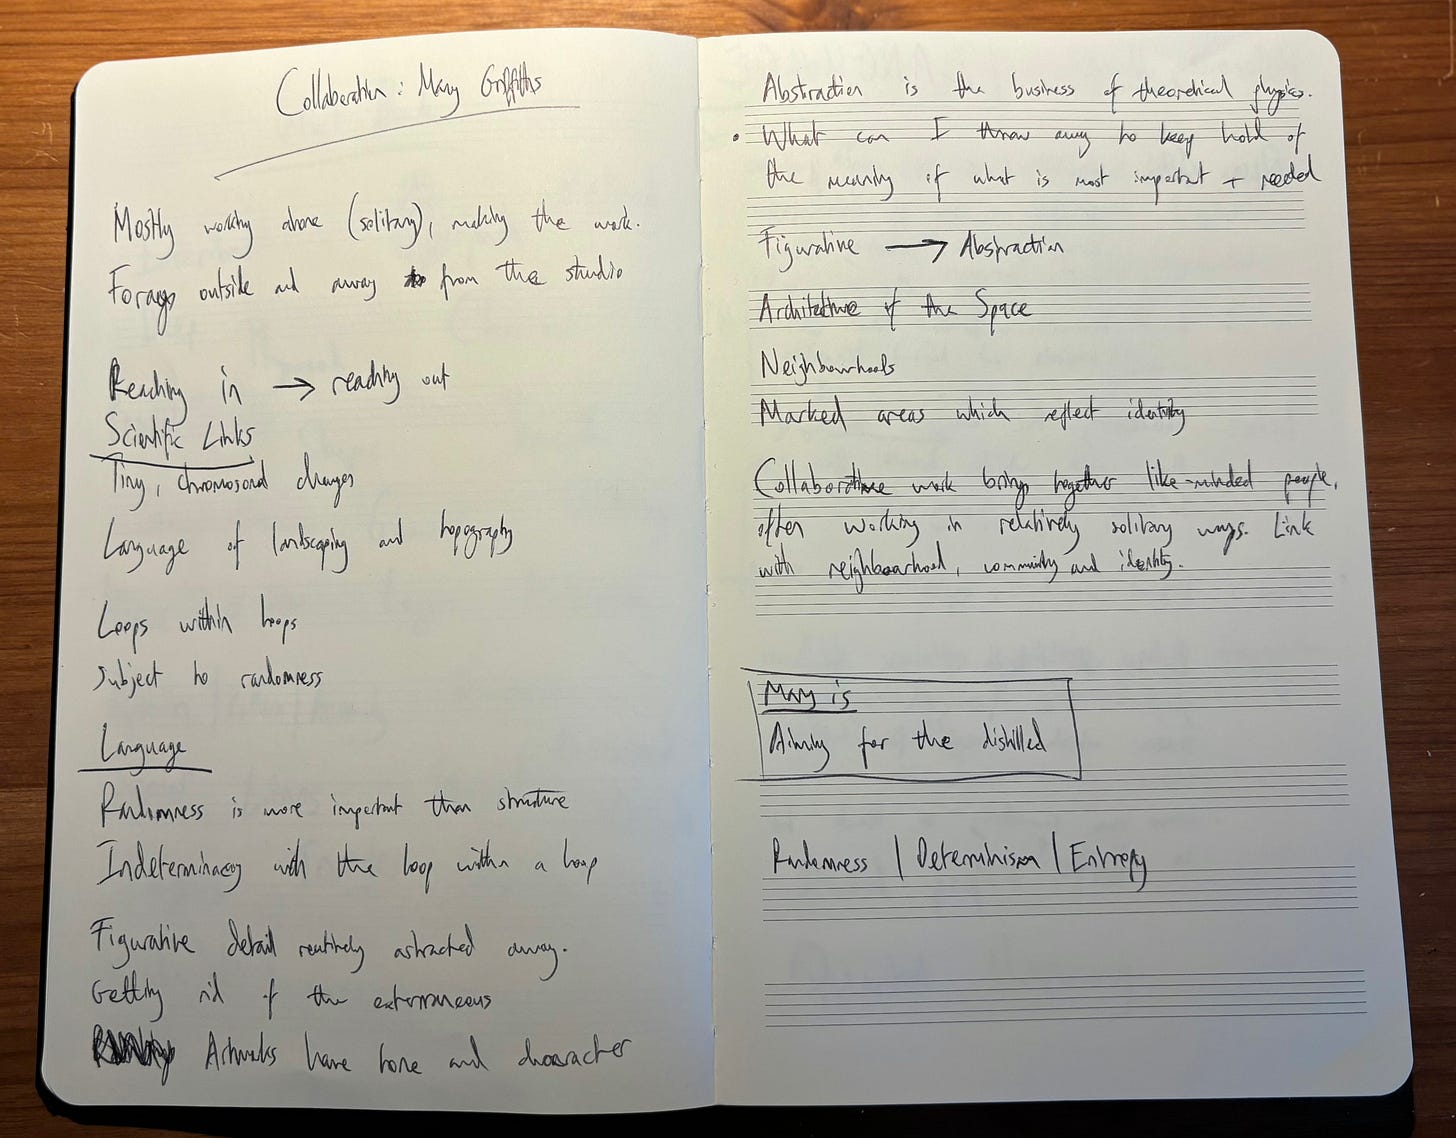 Collaboration : Mary Griffiths
Mostly working alone (solitary), making the work.
Forays outside and away from the studio
Reaching in → reaching out
Scientific Links
Tiny, chromosonal changes
Language of landscaping and topography
Loops within loops
Subject to randomness
Language
Randomness is more important than structure
Indeterminacy with the loop within a loop
Figurative detail routinely astracted away.
Getting rid of the exterraneous
Artworks have tone and character
Abstraction is the business of theoretical physics.
• What can I throw away to keep hold of
the meaning of what is most important + needed
Figurative → Abstraction
Architecture of the Space
Neighbourhoods
Marked areas which reflect identity
Collaborative work brings together like-minded people,
often working in relatively solitary ways. Link
with neighbourhood, community and identity.
Mary is
Aiming for the distilled
Randomness | Determinism | Entropy